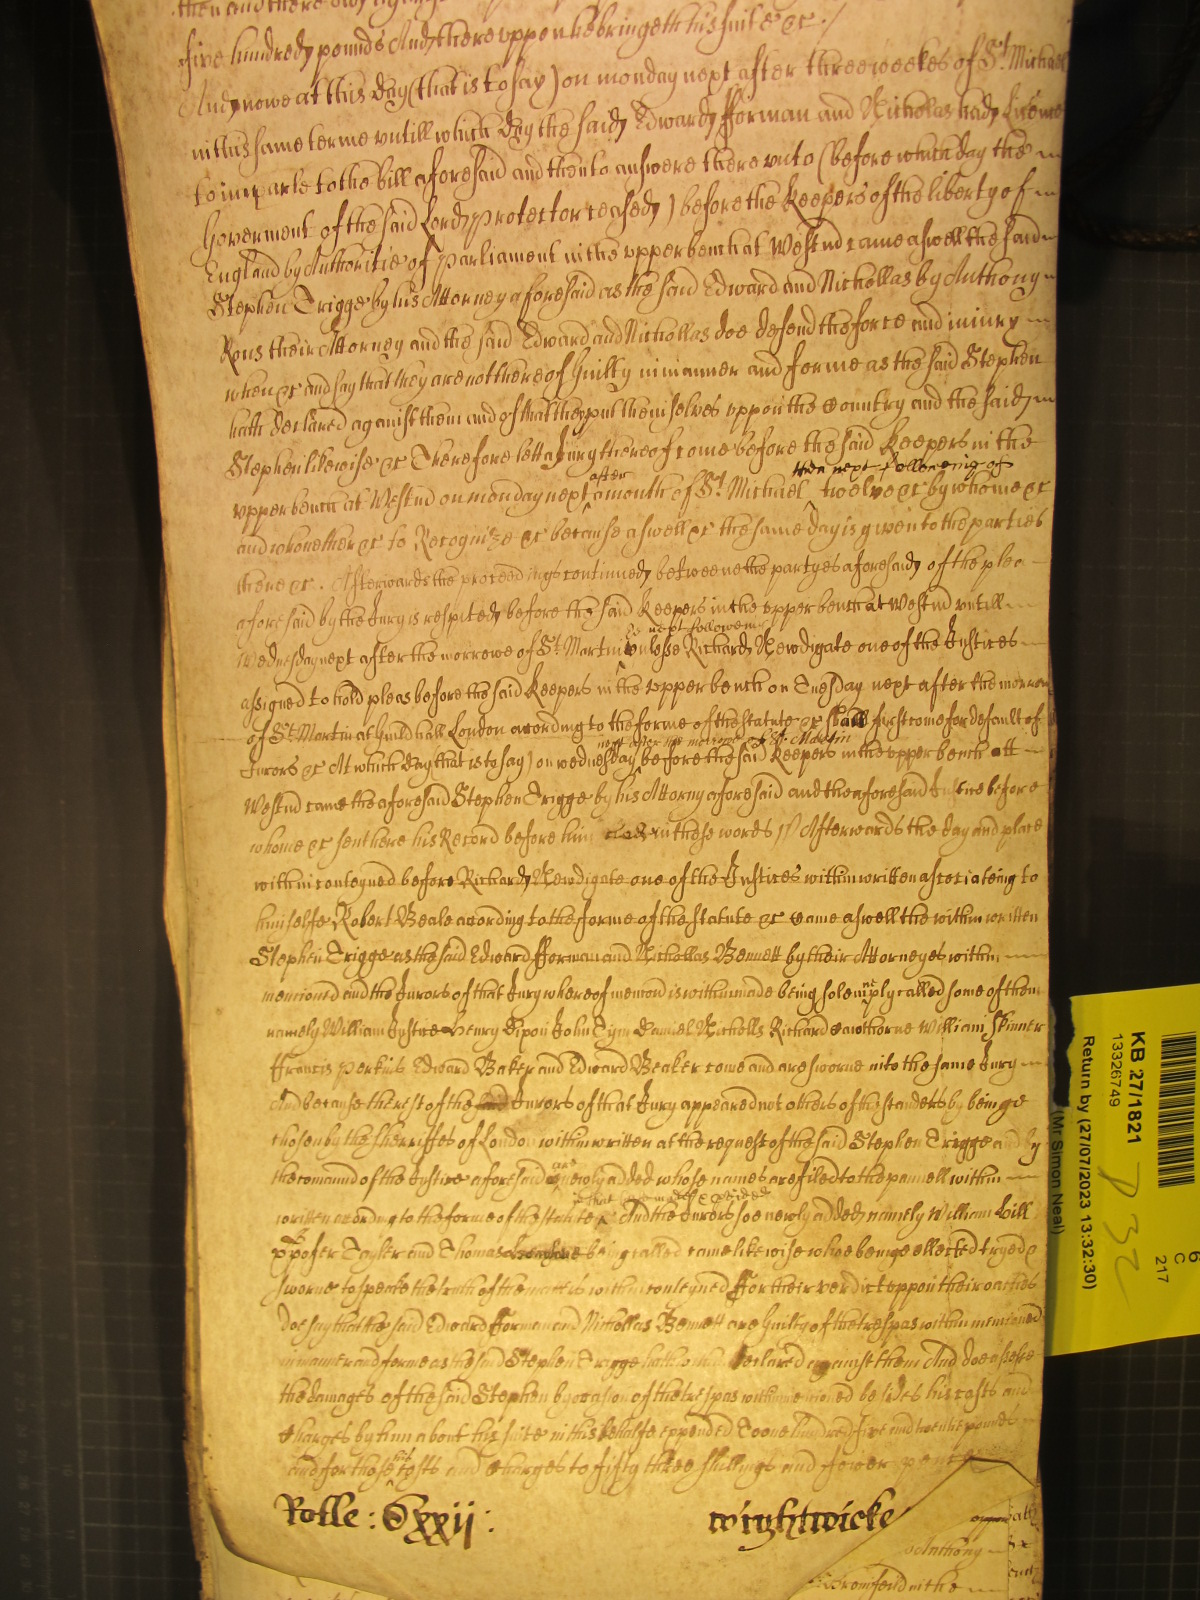 then and there
five hundred pounds And there uppon he bringeth his suite &c /
And nowe at this day (that is to say) on monday next after three weekes of St. Michael
in this same terme untill which day the said Edward fforman and Nichollas had licence
to imparle to the bill aforesaid and then to answere there unto (before which day the
Goverment of the said Lord protector ceased) before the Keepers of the liberty of
England by Authoritie of Parliament in the upper bench at Westmd came aswell the said
Stephen Trigge by his Attorney aforesaid as the said Edward and Nichollas by Anthony
Rous their Attorney and the said Edward and Nichollas doe defend the force and injury
when &c and say that they are not thereof Guilty in manner and forme as the said Stephen
hath declared against them and of that they put themselves uppon the Country and the said
Stephen likewise &c Therefore lett a Jury thereof come before the said Keepers in the
after then next following of
upper bench at Westmd on monday next a month of St. Michael twelve &c by whome &c
and who nether &c to Recognize &c because aswell &c the same day is given to the parties
there &c. Afterwards the proceedings continued betweene the partyes aforesaid of the plea
aforesaid by the Jury is respited before the said Keepers in the upper bench at Westmd untill
next followeing
Wednesday next after the morrowe of St. Martin unlesse Richard Newdigate one of the Justices
assigned to hold pleas before the said Keepers in the upper bench on Tuesday next after the morrow
of St. Martin at Guildhall London acording to the forme of the statute &c shall first come for default of
next after the morrowe of St. Martin
Jurors &c At which day (that is to say) on wednesday before the said Keepers in the upper bench att
Westmd came the aforesaid Stephen Trigge by his Attorny aforesaid and the aforesaid Justice before
whome &c sent here his Record before him in these words // Afterwards the day and place
within conteyned before Richard Newdigate one of the Justices within written asociateing to
himselfe Robert Beale acording to the forme of the statute &c came aswell the within written
Stephen Trigge as the said Edward fforman and Nichollas Bennett by their Attorneyes within
mencioned and the Jurors of that Jury whereof mencion is within made being solemply called some of them
namely William Justice Henry Dipon John Tym Daniel Nicholls Richard Cawthorne William Skinner
Francis Perkins Edward Baker and Edward Beaker come and are sworne into the same Jury
And because the rest of the Jurors of that Jury appeared not others of the standers by beinge
chosen by the Sherriffes of London within written at the request of the said Stephen Trigge and by
are
the comannd of the Justice aforesaid newly added whose names are filed to the pannell within
written acording to the forme of the statute And the Jurors soe newly added namely William Bill
Tayler and Thomas being called came likewise whoe beinge ellected tryed &
sworne to speake the truth of the matters within conteyned ffor their verdict uppon their oathes
doe say that the said Edward fforman and Nichollas Bennett are Guilty of the trespas within mencioned
in manner and forme as the said Stephen Trigge hath declared against them And doe assesse
the damages of the said Stephen by ocasion of the trespas within mencioned besides his costs and
Charges by him about his suite in this behalfe expended To one hundred five and twentie pounds
and for those costs and Charges to fifty three shillings and fower pence
Rolle : Cxxij : wightwicke
Anthony
KB 27/1821
13326749
Return by (27/07/2023 13:32:30)
(Mr Simon Neal)
6
C
217